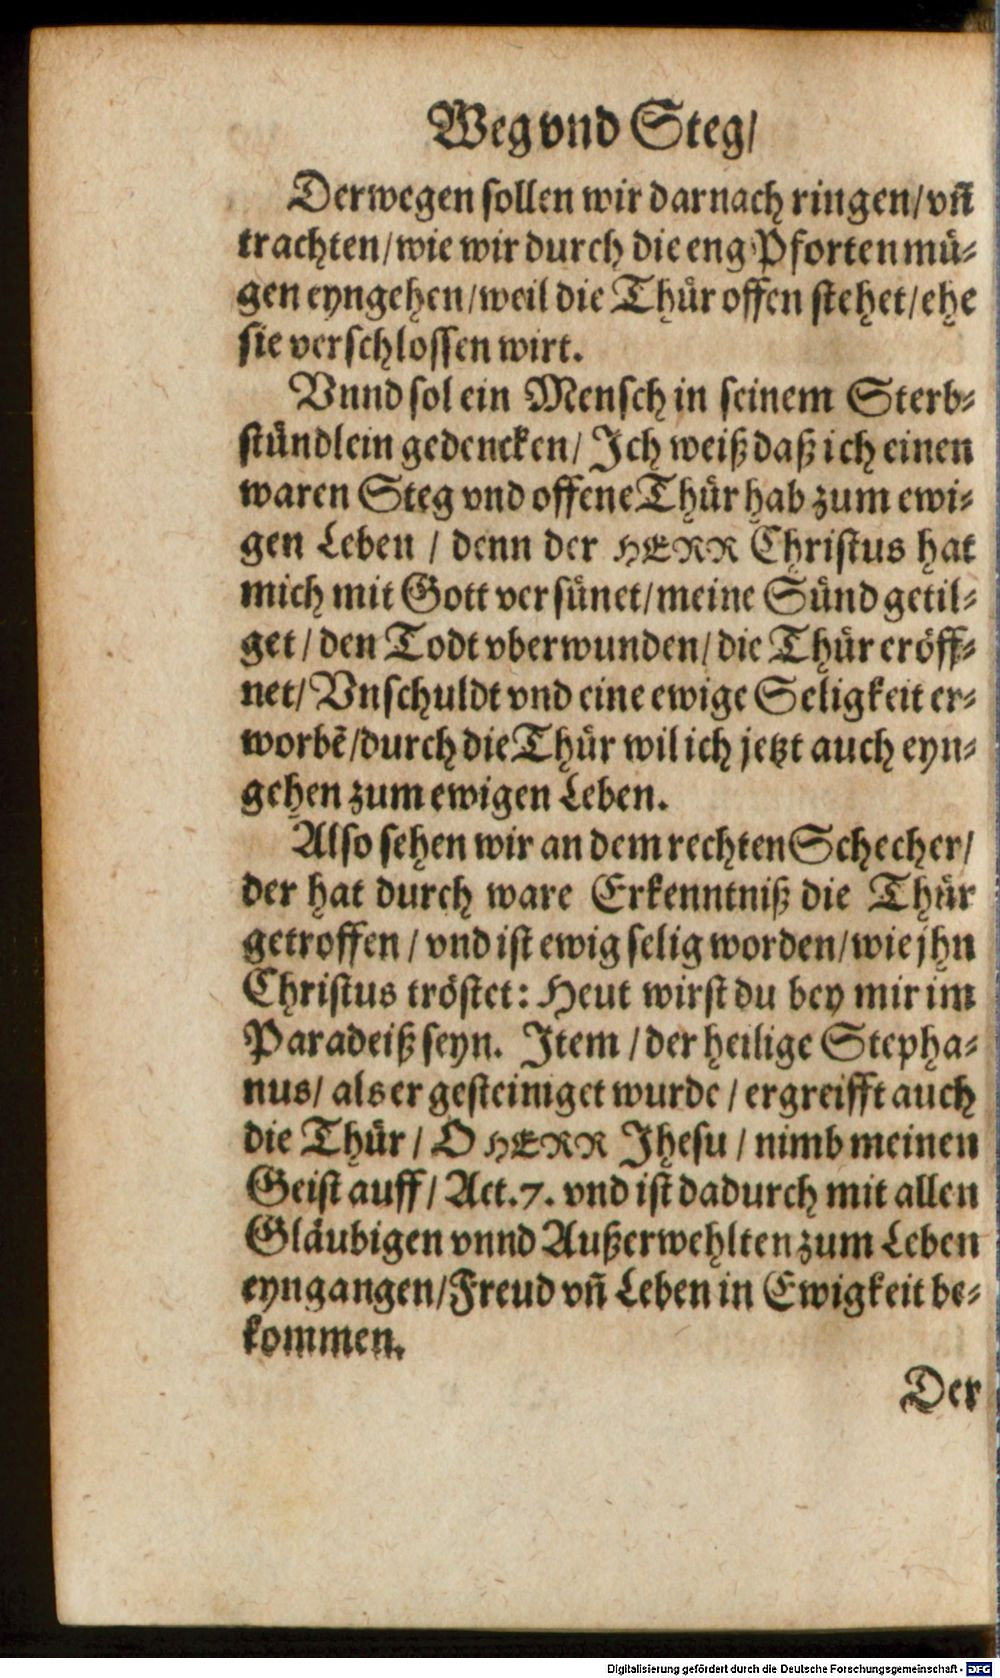 Weg vnd Steg/
Derwegen sollen wir darnach ringen/ vñ
trachten/ wie wir durch die eng Pforten mü-
gen eyngehen/ weil die Thür offen stehet/ ehe
sie verschlossen wirt.
Vnnd sol ein Mensch in seinem Sterb-
stündlein gedencken/ Ich weiß daß ich einen
waren Steg vnd offene Thür hab zum ewi-
gen Leben / denn der HERR Christus hat
mich mit Gott versünet/ meine Sünd getil-
get/ den Todt vberwunden/ die Thür eröff-
net/ Vnschuldt vnd eine ewige Seligkeit er-
worbẽ/ durch die Thür wil ich jetzt auch eyn-
gehen zum ewigen Leben.
Also sehen wir an dem rechten Schecher/
der hat durch ware Erkenntniß die Thür
getroffen / vnd ist ewig selig worden/ wie jhn
Christus tröstet: Heut wirst du bey mir im
Paradeiß seyn. Item / der heilige Stepha-
nus/ als er gesteiniget wurde / ergreifft auch
die Thür / O HERR Jhesu / nimb meinen
Geist auff/ Act. 7. vnd ist dadurch mit allen
Gläubigen vnnd Außerwehlten zum Leben
eyngangen/ Freud vñ Leben in Ewigkeit be-
kommen.
Der
Digitalisierung gefördert durch die Deutsche Forschungsgemeinschaft - DFG